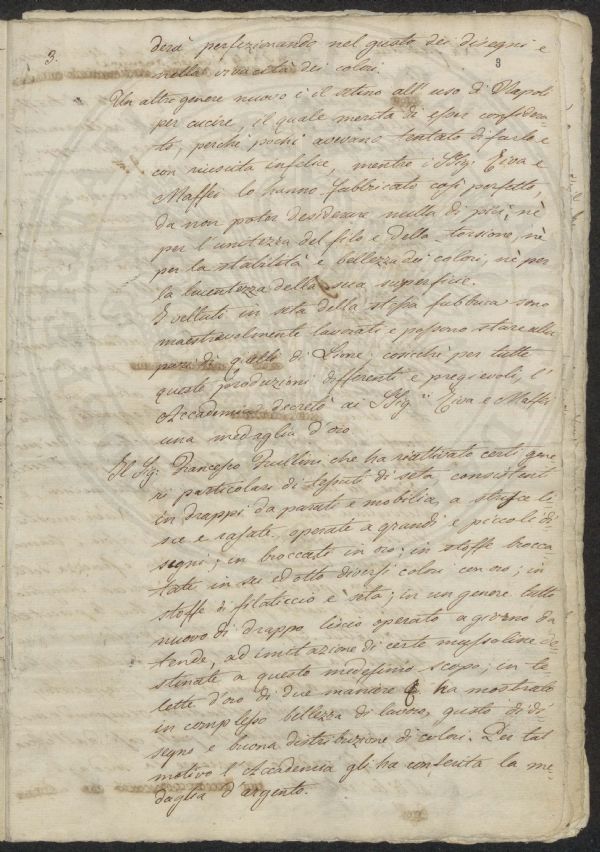 3.
8
derà perfezionando nel gusto dei disegni e
nella vivacità dei colori.
Un altro genere nuovo è il retino all'uso di Napoli
per cucire, il quale merita di esser considera
to, perchè pochi avevano tentato di farlo e
con riuscita infelice, mentre i SSig.i Tiva e
Maffei lo hanno fabbricato così perfetto,
da non poter desiderare nulla di più, nè
per l'unitezza del filo e della torsione, nè
per la stabilità e bellezza dei colori, nè per
la lucentezza della sua superficie.
I velluti in seta della stessa fabbrica sono
maestrevolmente lavorati e possono stare alla
pari di quelli di Lione; cosicchè per tutte
queste produzioni differenti e pregievoli, l'
Accademia decretò ai SSig.ri Tiva e Maffei
una medaglia d'oro
Il Sig.r Francesco Trullini che ha riattivato certi gene
ri particolari di tessuti di seta consistenti
in drappi da parati e mobilia, a strisce li
sce e rasate, operate a grandi e piccoli di
segni; in broccati in oro; in stoffe brocca
tate in sei ed otto diversi colori con oro; in
stoffe di filaticcio e seta; in un genere tutto
nuovo di drappo liscio operato a giorno da
tende, ad imitazione di certe mussoline de
stinate a questo medesimo scopo; in te
lette d'oro di due maniere ha mostrato
in complesso bellezza di lavoro, gusto di di
segno e buona distribuzione di colori. Per tal
motivo l'Accademia gli ha conferita la me-
daglia d'argento.